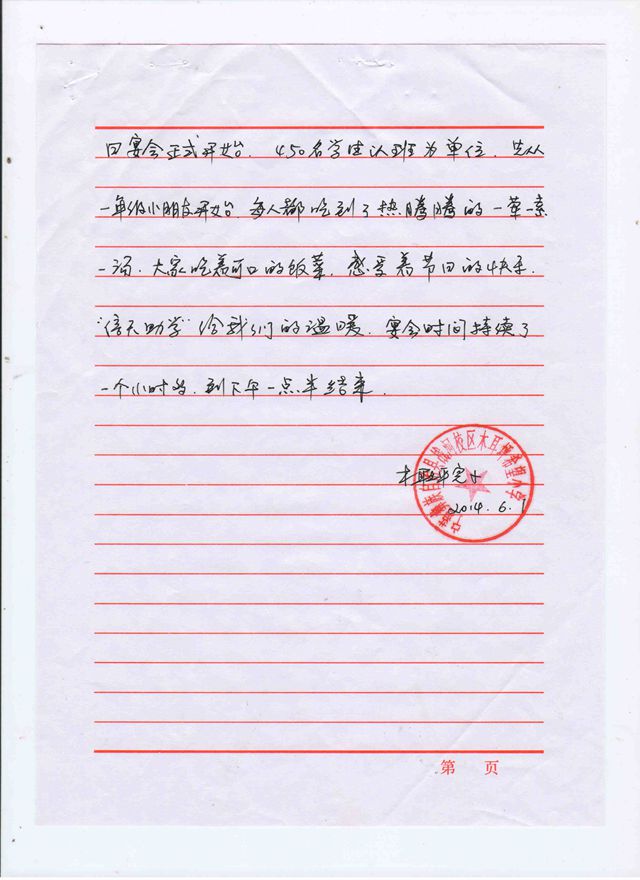 日宴会正式开始. 450名学生以班为单位. 先从
一年级小朋友开始. 每人都吃到了热腾腾的一荤一素
一汤. 大家吃着可口的饭菜. 感受着节日的快乐.
"倍天助学"给我们的温暖. 宴会时间持续了
一个小时的. 到下午一点半结束.
木耳坪完小
2014.6.1
木耳坪希望小学
第 页